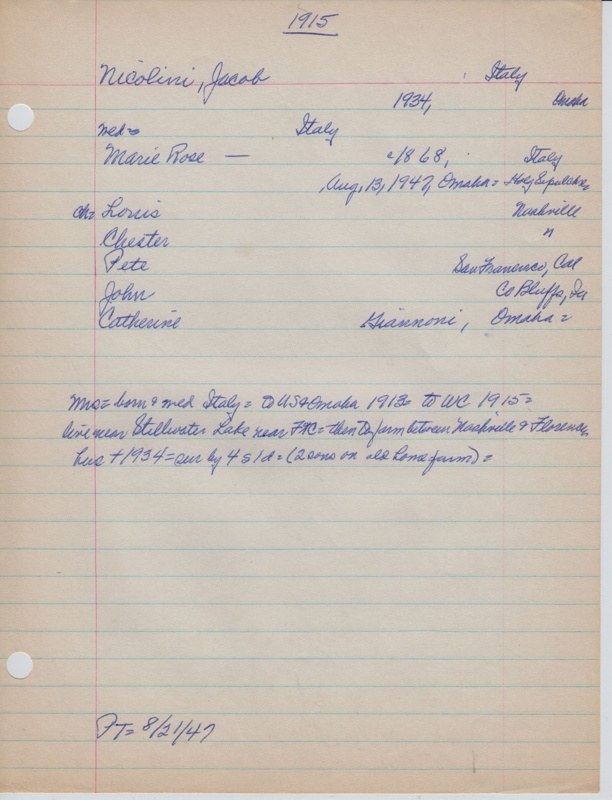 1915
Nicolini, Jacob Italy
1934, Omaha
wed= Italy
Marie Rose — c1868, Italy
Aug, 13, 1947, Omaha= Holy Sepulchre
ch= Louis Nashville
Chester "
Pete San Francisco, Cal
John Co Bluffs, Ia
Catherine Giannoni, Omaha=
Mrs= born & wed Italy= to US & Omaha 1913= to WC 1915=
live near Stillwater Lake near FTC= then to farm between Nashville & Florence,
hus + 1934= sur by 4 s 1 d= (2 sons on old home farm)=
PT= 8/21/47